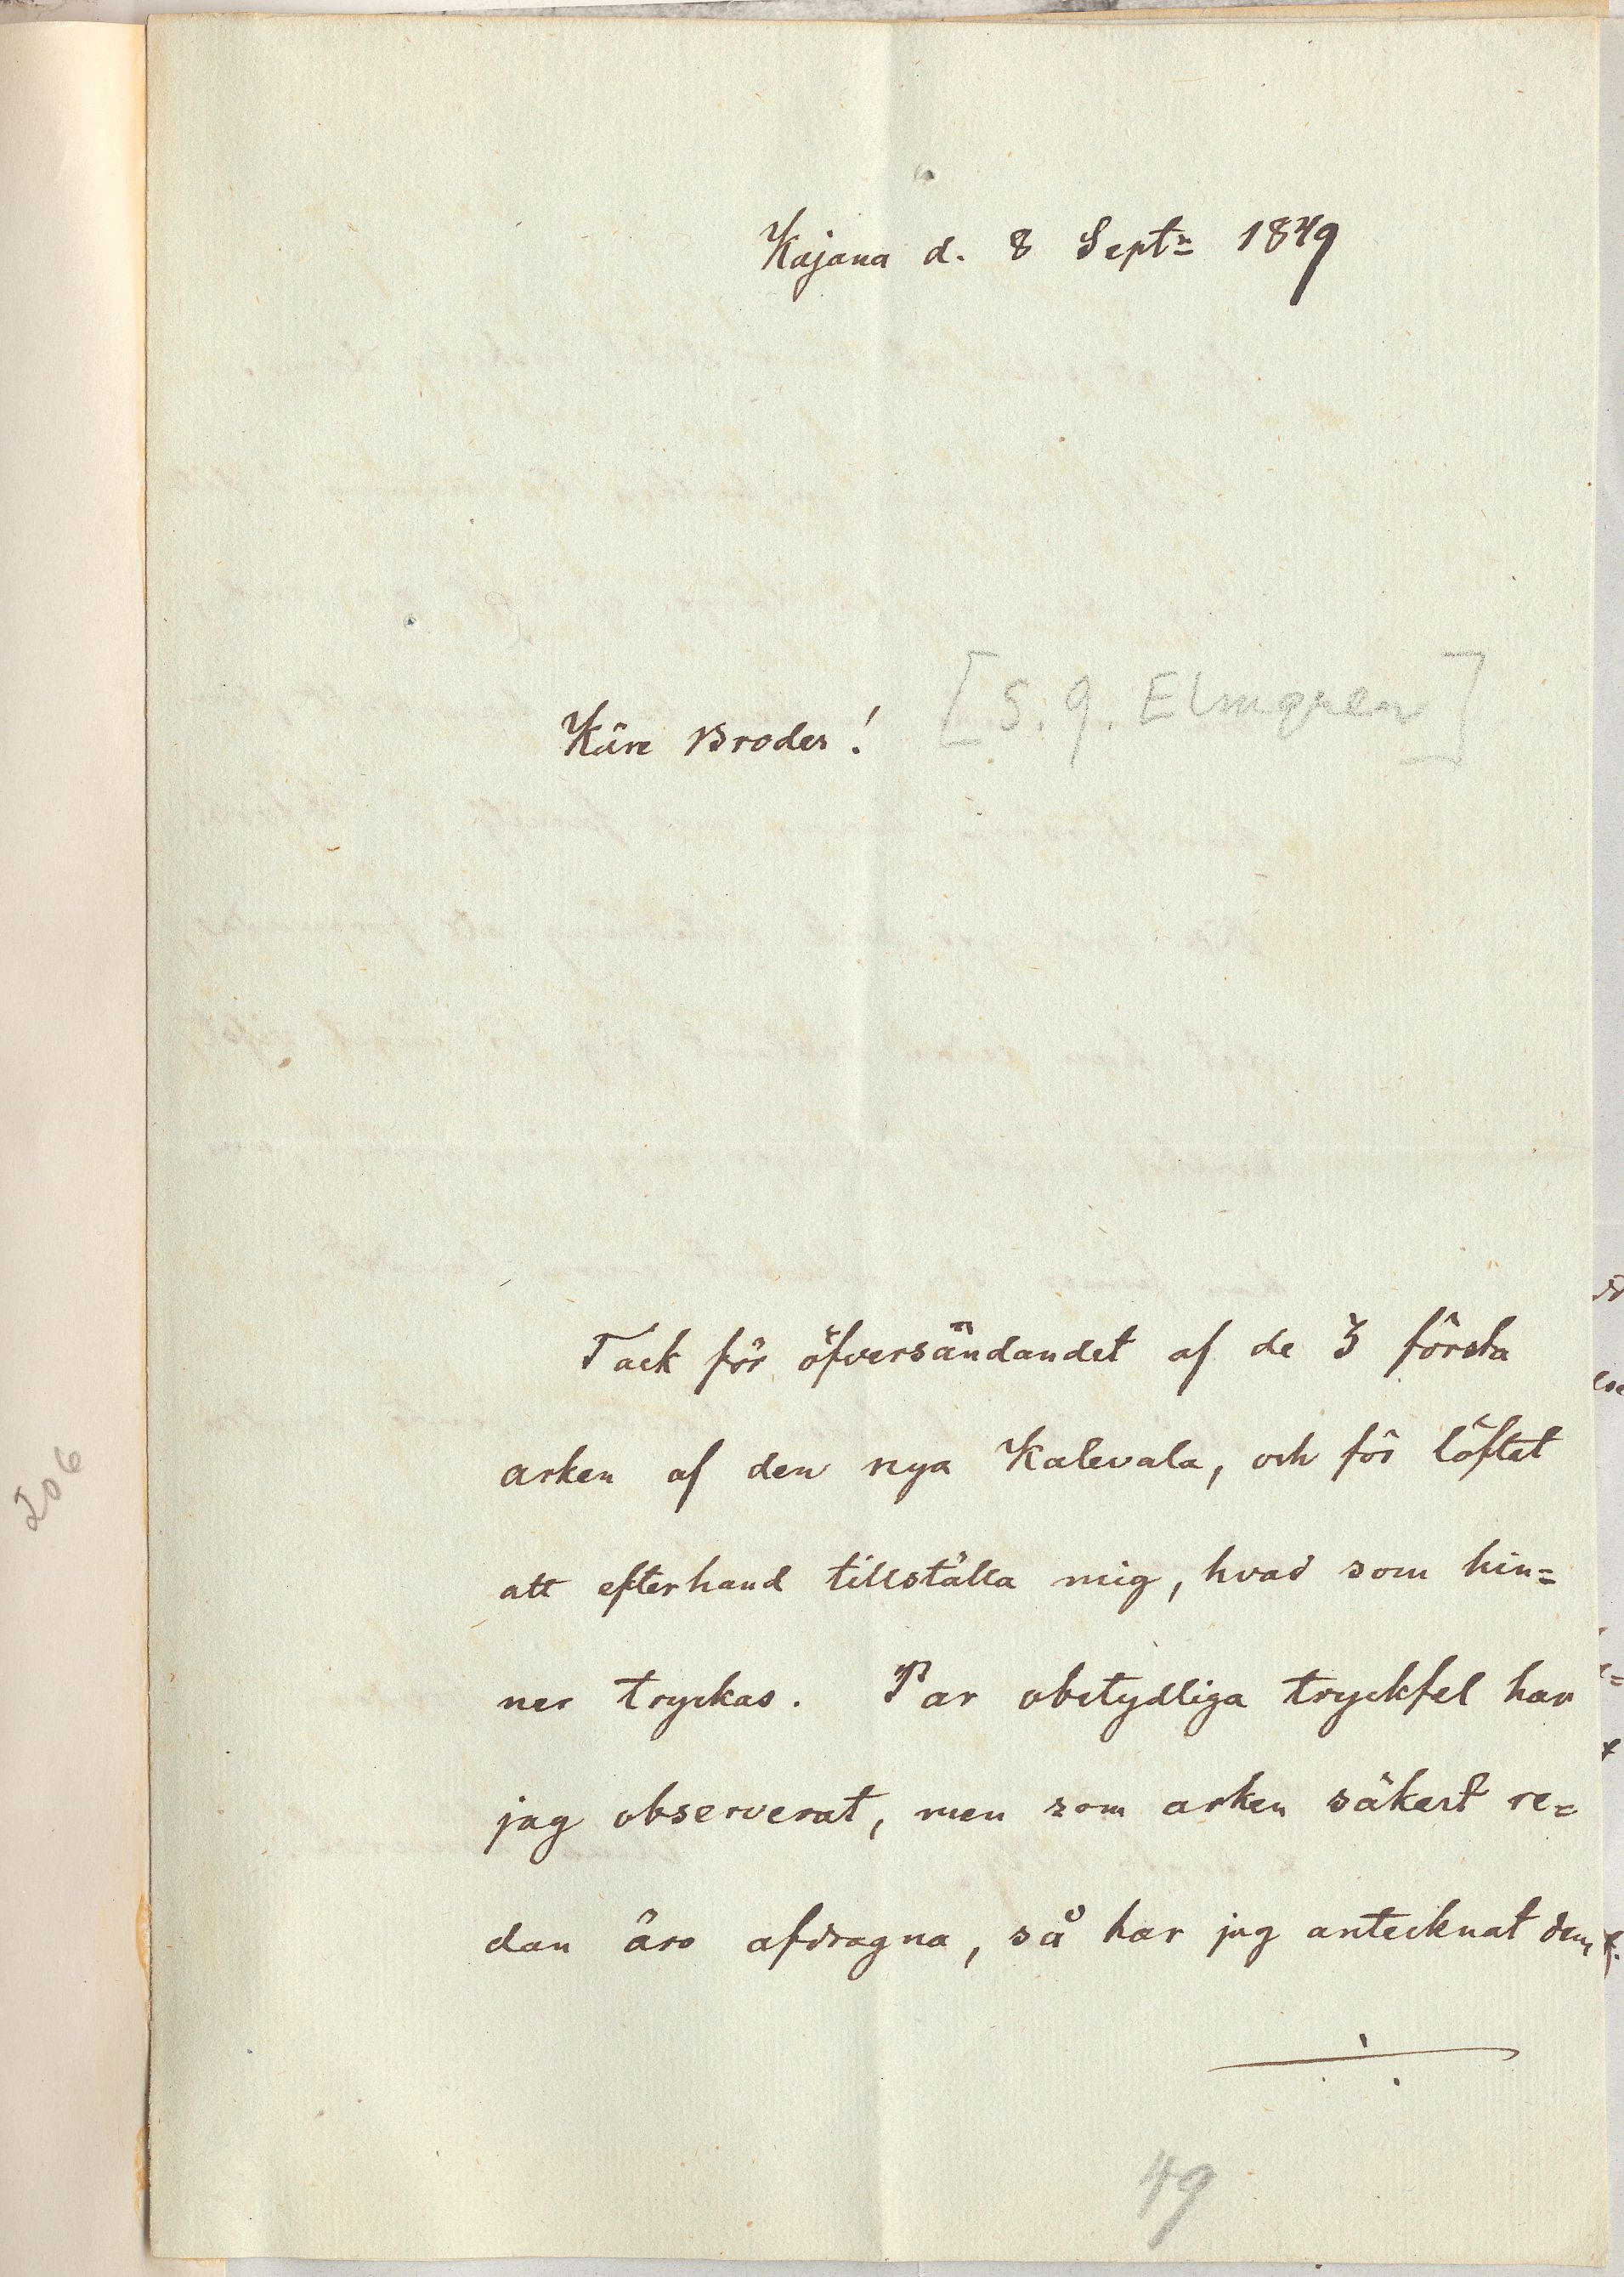 Kajana d. 8 Septr 1849
Käre Broder! [S. G. Elmgren]
Tack för öfversändandet af de 3 första
arken af den nya Kalevala, och för löftet
att efterhand tillställa mig, hvad som hin=
ner tryckas. Par obetydliga tryckfel har
jag observerat, men som arken säkert re=
dan äro afdragna, så har jag antecknat dem
49
206